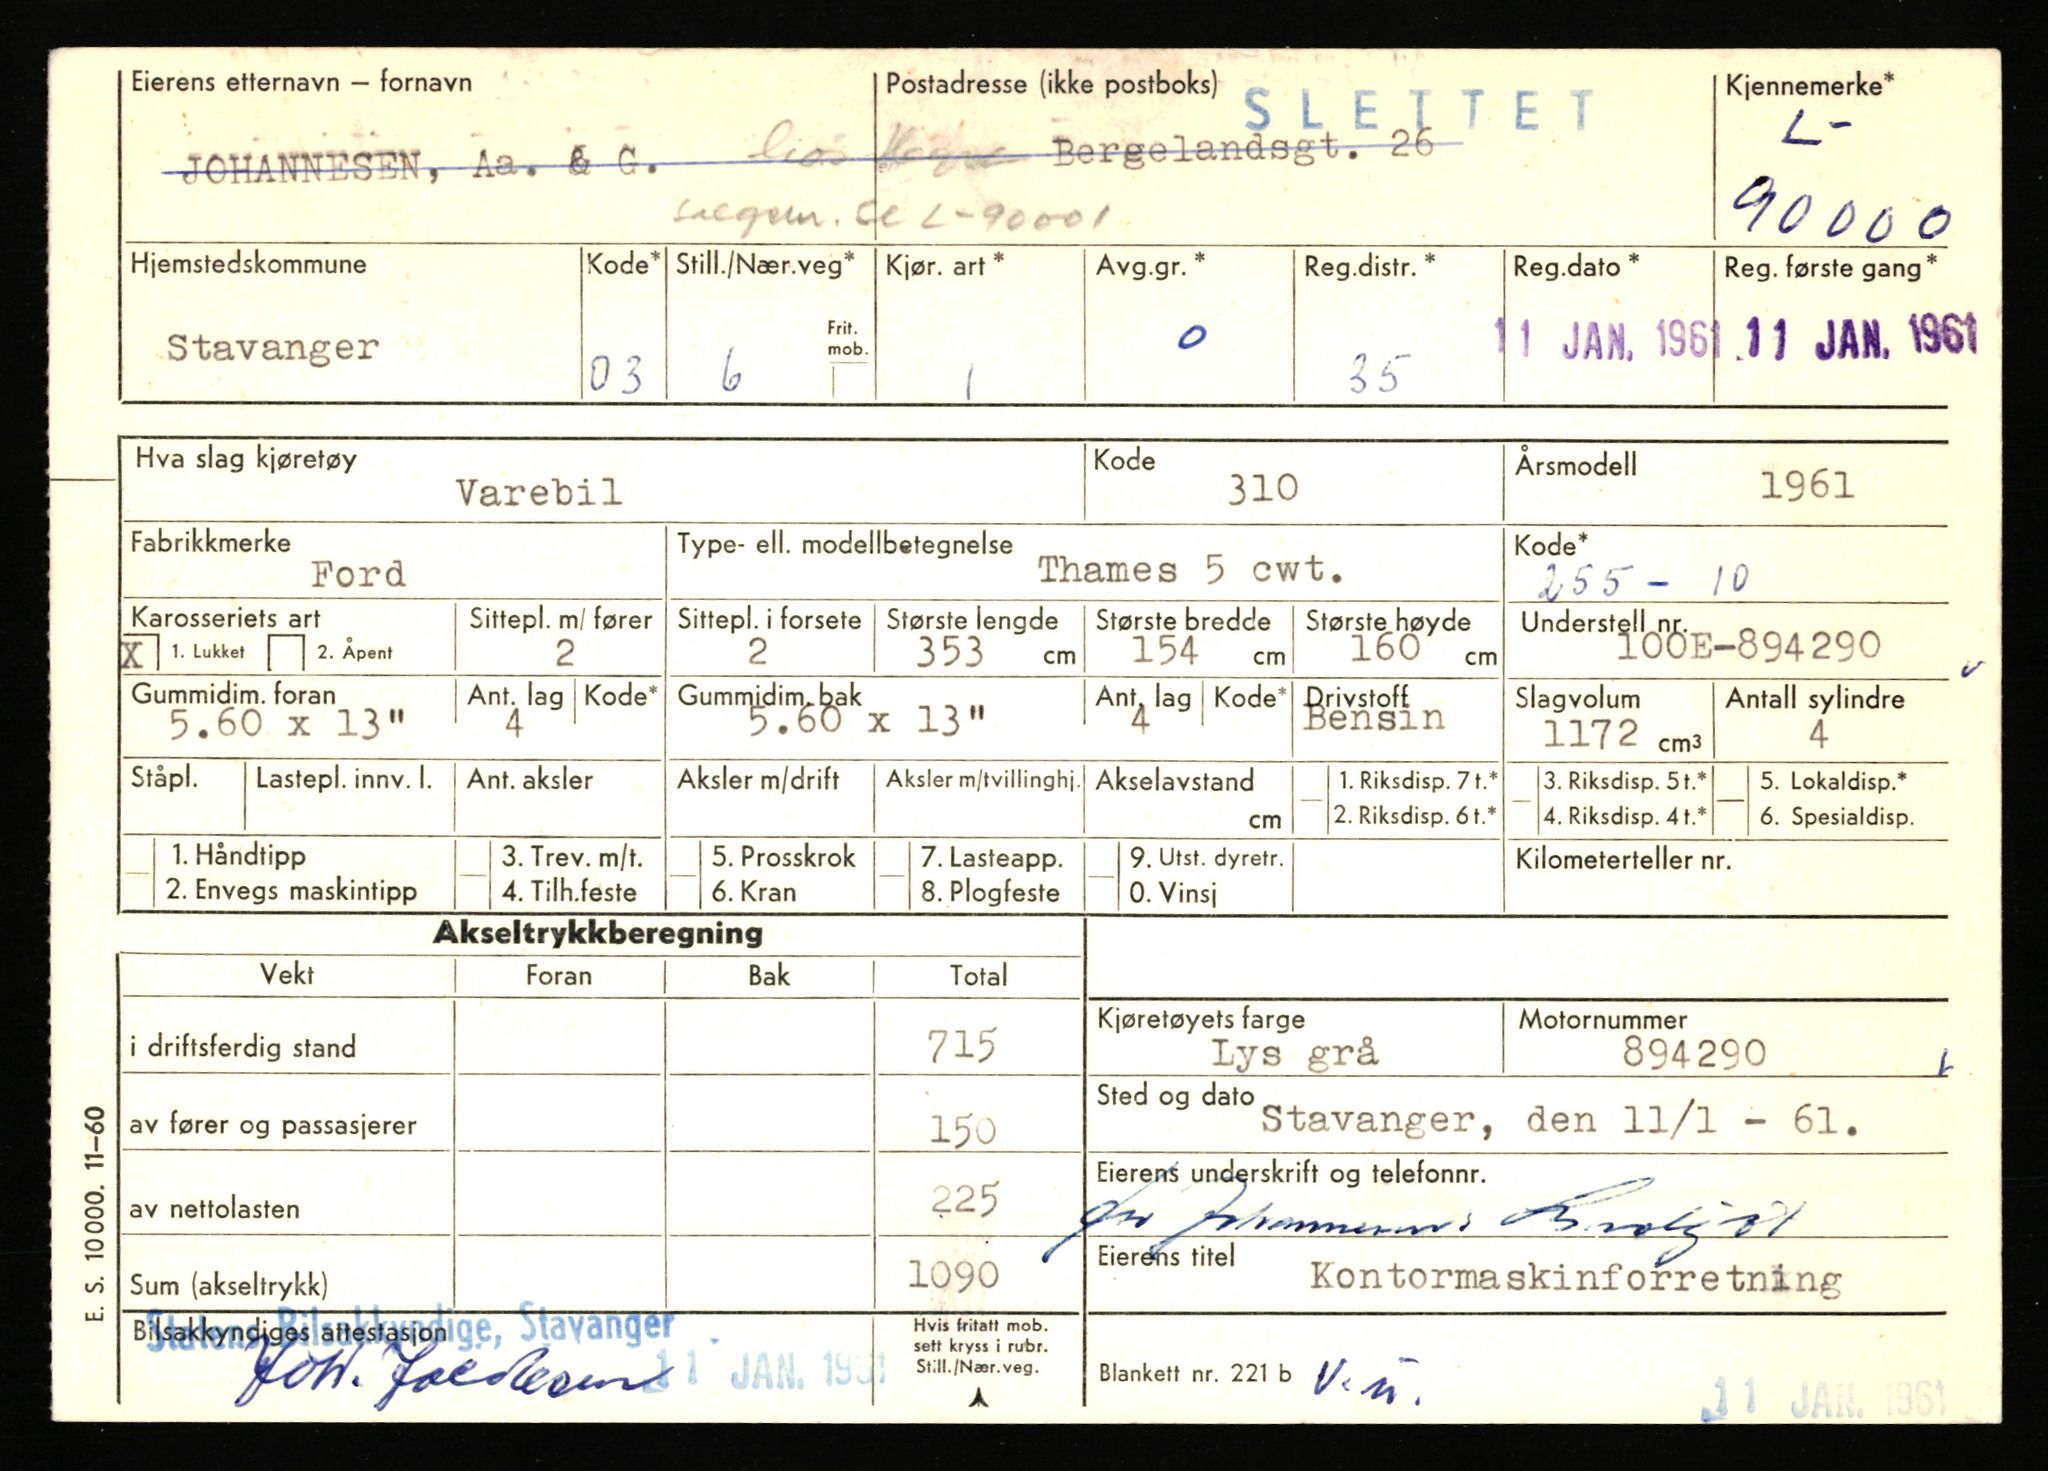 Eierens etternavn — fornavn Postadresse (ikke postboks) SLETTET Kjennemerke*
JOHANNESEN, Aa. & G. Bergelandsgt. 26 L-
L-90001 90000
Hjemstedskommune Kode* Still./Nær.veg* Kjør. art* Avg.gr.* Reg.distr.* Reg.dato* Reg. første gang*
Stavanger 03 6 Frit. mob. 1 0 35 11 JAN. 1961 11 JAN. 1961
Hva slag kjøretøy Kode Årsmodell
Varebil 310 1961
Fabrikkmerke Type- ell. modellbetegnelse Kode*
Ford Thames 5 cwt. 255 - 10
Karosseriets art Sittepl. m/ fører Sittepl. i forsete Største lengde Største bredde Største høyde Understell nr.
X 1. Lukket 2. Åpent 2 2 353 cm 154 cm 160 cm 100E-894290
Gummidim. foran Ant. lag Kode* Gummidim. bak Ant. lag Kode* Drivstoff Slagvolum Antall sylindre
5.60 x 13" 4 5.60 x 13" 4 Bensin 1172 cm³ 4
Ståpl. Lastepl. innv. l. Ant. aksler Aksler m/drift Aksler m/tvillinghj. Akselavstand 1. Riksdisp. 7 t.* 3. Riksdisp. 5 t.* 5. Lokaldisp.*
cm 2. Riksdisp. 6 t.* 4. Riksdisp. 4 t.* 6. Spesialdisp.
1. Håndtipp 3. Trev. m/t. 5. Prosskrok 7. Lasteapp. 9. Utst. dyretr. Kilometerteller nr.
2. Envegs maskintipp 4. Tilh.feste 6. Kran 8. Plogfeste 0. Vinsj
Akseltrykkberegning
Vekt Foran Bak Total
Kjøretøyets farge Motornummer
i driftsferdig stand 715 Lys grå 894290
Sted og dato
av fører og passasjerer 150 Stavanger, den 11/1 - 61.
Eierens underskrift og telefonnr.
av nettolasten 225
Eierens titel
Sum (akseltrykk) 1090 Kontormaskinforretning
Statens Bilsakkyndige, Stavanger
Bilsakkyndiges attestasjon
11 JAN. 1961
Hvis fritatt mob.
sett kryss i rubr.
Still./Nær.veg.
Blankett nr. 221 b
11 JAN. 1961
E. S. 10000. 11—60